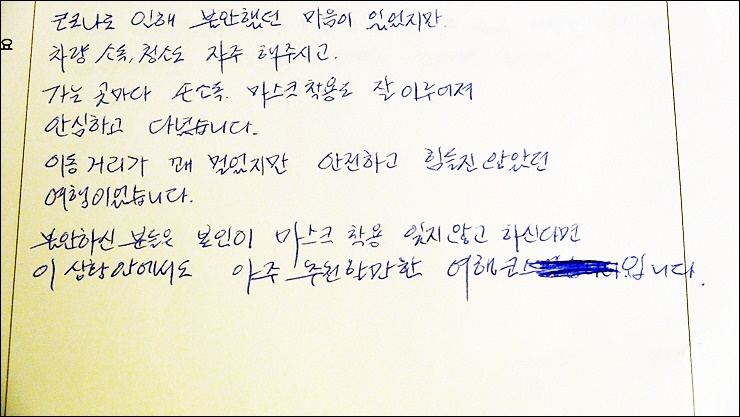 요
코로나로 인해 불안했던 마음이 있었지만
차량 소독, 청소도 자주 해주시고.
가는 곳마다 손소독. 마스크 착용도 잘 이루어져
안심하고 다녔습니다.
이동 거리가 꽤 멀었지만 안전하고 힘들진 않았던
여행이었습니다.
불안하신 분들은 본인이 마스크 착용 잊지않고 하신다면
이 상황 안에서도 아주 추천할만한 여행코스입니다.